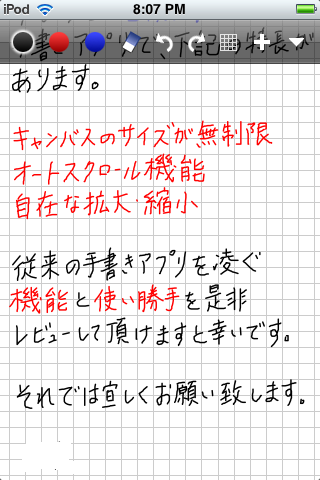 iPod 8:07 PM
手書きアプリで、下記の特長が
あります。
キャンバスのサイズが無制限
オートスクロール機能
自在な拡大・縮小
従来の手書きアプリを凌ぐ
機能と使い勝手を是非
レビューして頂けますと幸いです。
それでは宜しくお願い致します。